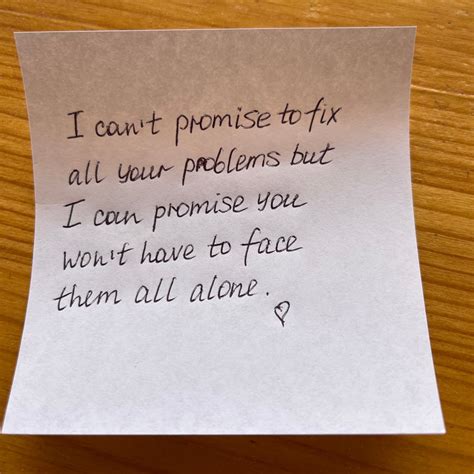 I can't promise to fix
all your problems but
I can promise you
won't have to face
them all alone.